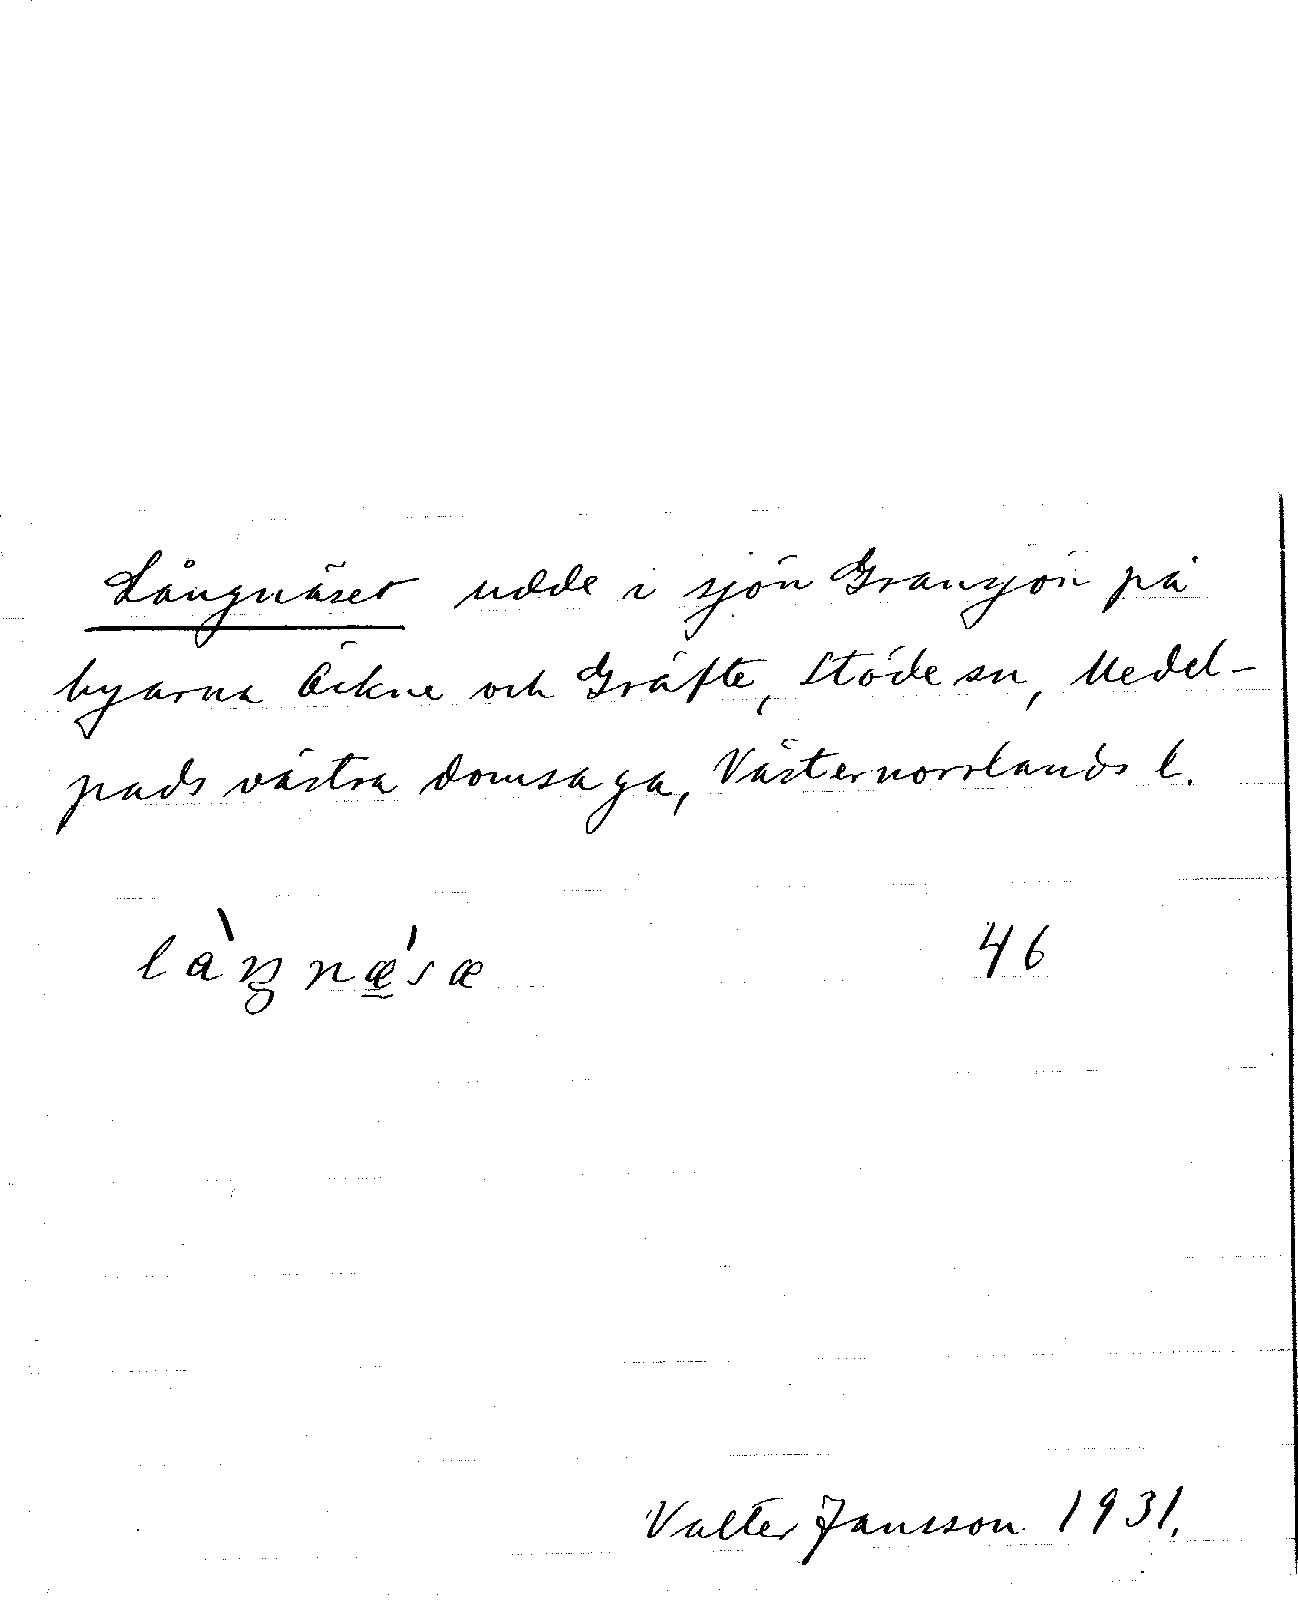 Långnäset udde i sjön Gransjön på
byarna Öckne och Gräfte, Stöde sn, Medel-
pads västra domsaga, Västernorrlands l.
là̀ŋnæ̲'sæ 46
Valter Jansson 1931.